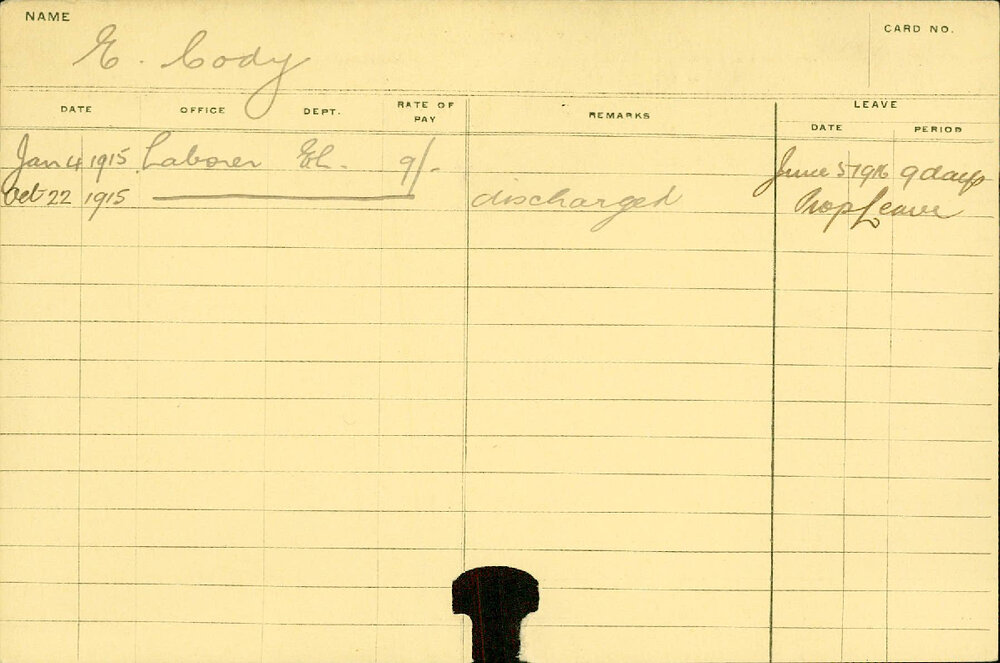 NAME
CARD NO.
E. Cody
DATE OFFICE DEPT. RATE OF PAY REMARKS LEAVE
DATE PERIOD
Jan 4 1915 Laborer El. 9/- June 5 1916 9 days
Oct 22 1915 discharged Prop Leave